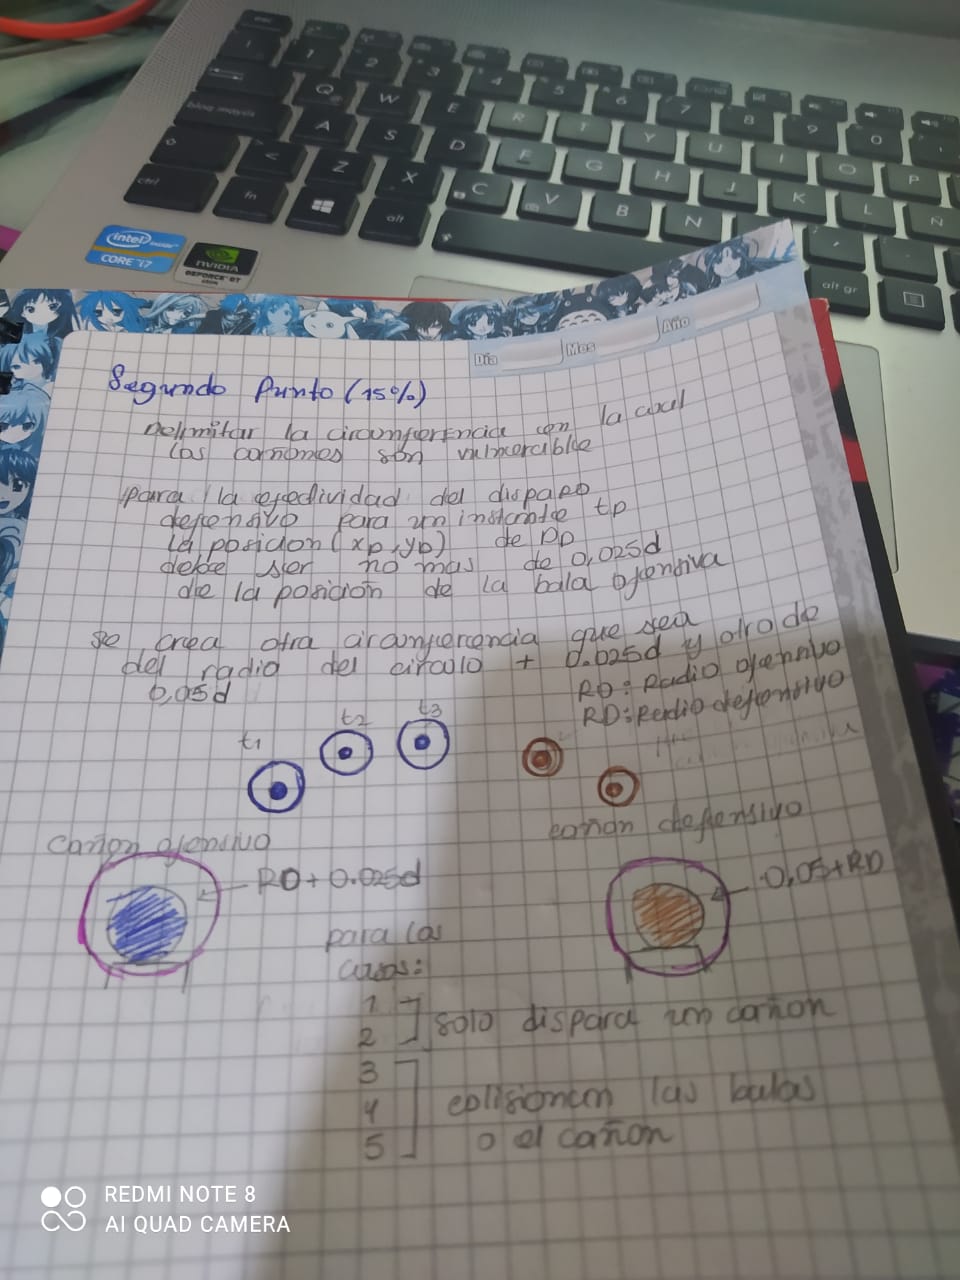 esc
1
2
3
4
5
6
7
8
9
0
Q
W
E
R
T
Y
U
I
O
P
bloq mayús
A
S
D
F
G
H
J
K
L
Ñ
<
Z
X
C
V
B
N
ctrl
fn
alt
alt gr
intel inside
CORE i7
NVIDIA
GEFORCE GT
Día
Mes
Año
Segundo Punto (15%)
Delimitar la circunferencia con la cual
los cañones son vulnerables
para la efectividad del disparo
defensivo para un instante tp
la posicion (xp, yp) de DD
debe ser no mas de 0,025d
de la posición de la bala ofensiva
se crea otra circunferencia que sea
del radio del circulo + 0.025d y otro de
0,05d
RO: Radio ofensivo
RD: Radio defensivo
t1
t2
t3
cañon ofensivo
cañon defensivo
RO + 0.025d
0,05+RD
para los
casos:
1
2
solo dispara un cañon
3
4
5
colisionan las balas
o el cañon
REDMI NOTE 8
AI QUAD CAMERA